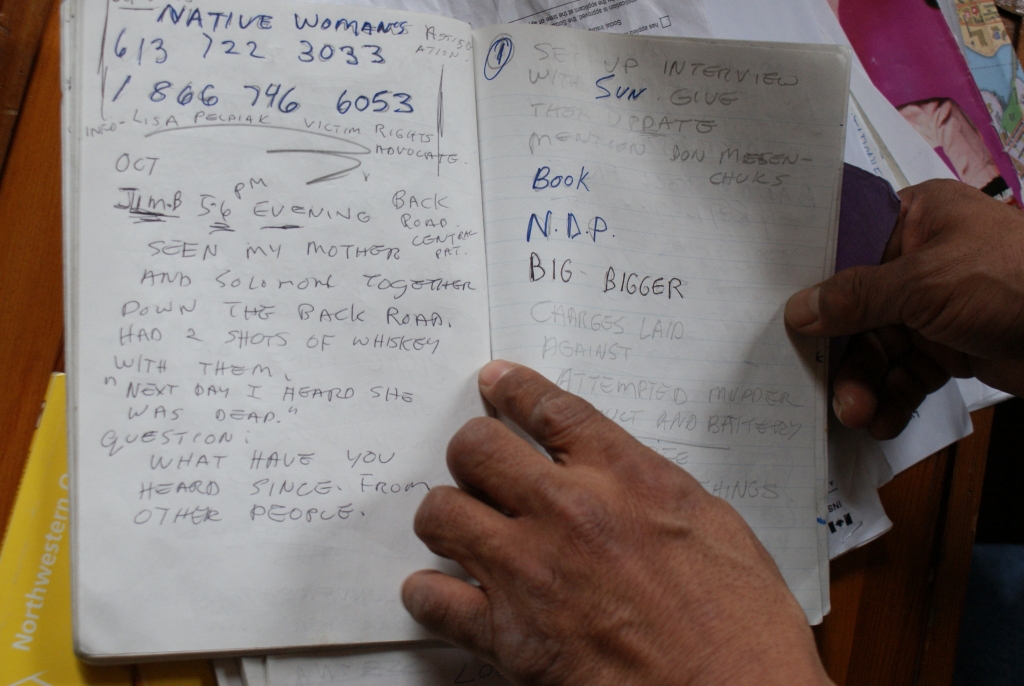 NATIVE WOMANS
613 722 3033
1 866 746 6053
INFO- LISA VICTIM RIGHTS
ADVOCATE.
OCT
5-6 PM EVENING BACK
ROAD.
CENTRAL
PAT.
SEEN MY MOTHER
AND SOLOMON TOGETHER
DOWN THE BACK ROAD.
HAD 2 SHOTS OF WHISKEY
WITH THEM.
"NEXT DAY I HEARD SHE
WAS DEAD."
QUESTION:
WHAT HAVE YOU
HEARD SINCE. FROM
OTHER PEOPLE.
1
SET UP INTERVIEW
WITH SUN. GIVE
THEM UPDATE
MENTION DON MESEN-
CHUKS
BOOK
N.D.P.
BIG - BIGGER
CHARGES LAID
AGAINST
ATTEMPTED MURDER
AND BATTERY
THINGS
Northwestern